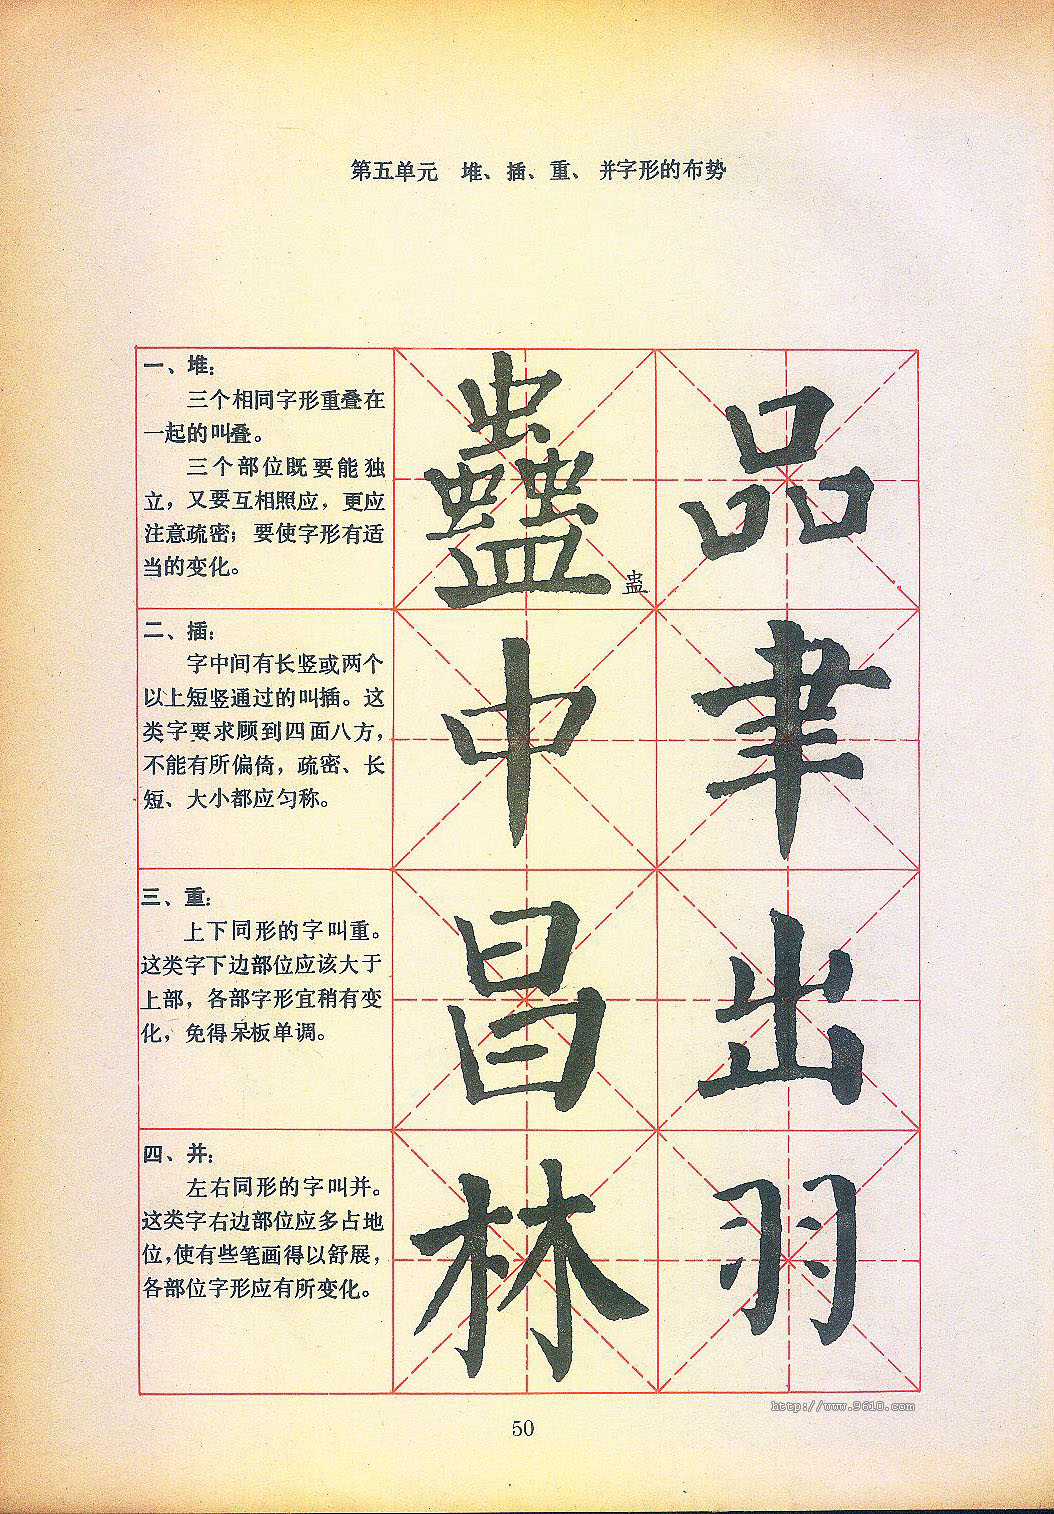 第五单元　堆、插、重、并字形的布势
一、堆：
三个相同字形重叠在
一起的叫叠。
三个部位既要能独
立，又要互相照应，更应
注意疏密；要使字形有适
当的变化。
蠱 品
蛊
二、插：
字中间有长竖或两个
以上短竖通过的叫插。这
类字要求顾到四面八方，
不能有所偏倚，疏密、长
短、大小都应匀称。
中 聿
三、重：
上下同形的字叫重。
这类字下边部位应该大于
上部，各部字形宜稍有变
化，免得呆板单调。
昌 出
四、并：
左右同形的字叫并。
这类字右边部位应多占地
位，使有些笔画得以舒展，
各部位字形应有所变化。
林 羽
http://www.9610.com
50